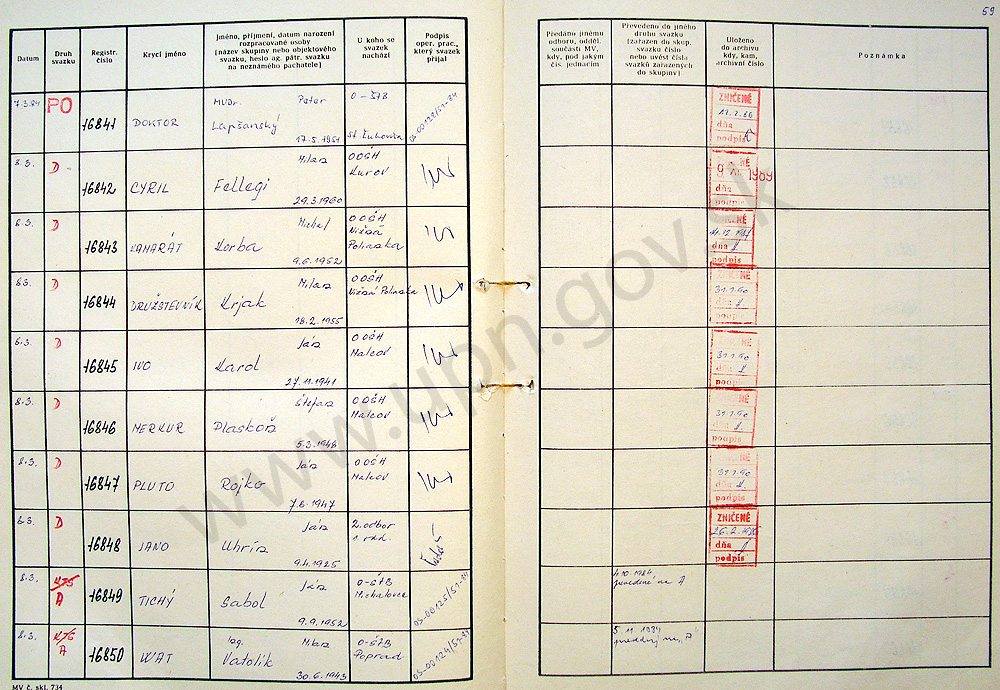 69
Datum
Druh svazku
Registr. číslo
Krycí jméno
Jméno, příjmení, datum narození rozpracované osoby (název skupiny nebo objektového svazku, heslo ag. pátr. svazku na neznámého pachatele)
U koho se svazek nachází
Podpis oper. prac., který svazek přijal
Předáno jinému odboru, odděl. součásti MV, kdy, pod jakým čís. jednacím
Převedeno do jiného druhu svazku (zařazen do skup. svazku číslo nebo uvést čísla svazků zařazených do skupiny)
Uloženo do archivu kdy, kam, archivní číslo
Poznámka
7.3.84 PO 16841 DOKTOR MUDr. Peter Lapšanský 17.5.1951 O-ŠTB St. Ľubovňa
ZNIČENÉ dňa podpis
8.3. D 16842 CYRIL Milan Fellegi 29.3.1960 OOŠH Kurov
1989 dňa podpis
8.3. D 16843 KAMARÁT Michal Korba 9.6.1952 OOŠH Nižná Polianka
ZNIČENÉ dňa podpis
8.3. D 16844 DRUŽSTEVNÍK Milan Krjak 18.2.1955 OOŠH Nižná Polianka
ZNIČENÉ 31.1.90 dňa podpis
8.3. D 16845 IVO Ján Karol 27.11.1941 OOŠH Malcov
ZNIČENÉ 31.1.90 dňa podpis
8.3. D 16846 MERKUR Štefan Plaskoň 5.3.1948 OOŠH Malcov
ZNIČENÉ 31.1.90 dňa podpis
8.3. D 16847 PLUTO Ján Rojko 7.6.1947 OOŠH Malcov
ZNIČENÉ 31.1.90 dňa podpis
8.3. D 16848 JANO Ján Uhrín 9.4.1925 2. odbor
ZNIČENÉ 26.2.1986 dňa podpis
8.3. A 16849 TICHÝ Ján Sabol 9.9.1952 O-ŠTB Michalovce OS-00125/51-84
4.10.1984 na A
8.3. A 16850 WAT Ing. Milan Vatolík 30.6.1943 O-ŠTB Poprad OS-00124/51-84
5.11.1984
MV č. skl. 734
www.upn.gov.sk